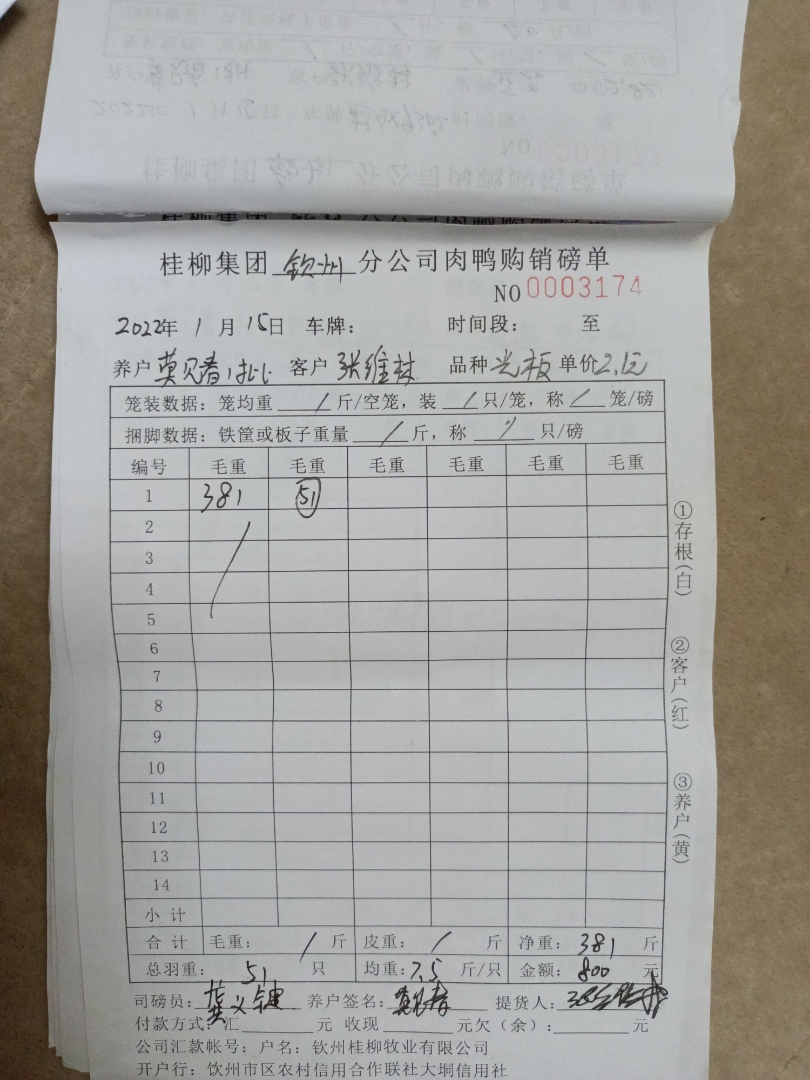 桂柳集团 钦州 分公司肉鸭购销磅单
NO 0003174
2022年 1 月 15日 车牌: 时间段: 至
养户 莫见春 1批 客户 张维林 品种 光板 单价 2.1元
笼装数据: 笼均重 / 斤/空笼, 装 / 只/笼, 称 / 笼/磅
捆脚数据: 铁筐或板子重量 / 斤, 称 / 只/磅
编号 毛重 毛重 毛重 毛重 毛重 毛重
1 381 51
2
3
4
5
6
7
8
9
10
11
12
13
14
小 计
合 计 毛重: / 斤 皮重: / 斤 净重: 381 斤
总羽重: 51 只 均重: 7.5 斤/只 金额: 800 元
司磅员: 养户签名: 莫见春 提货人:
付款方式: 汇 元 收现 元欠(余): 元
公司汇款帐号: 户名: 钦州桂柳牧业有限公司
开户行: 饮州市区农村信用合作联社大垌信用社
①存根(白)
②客户(红)
③养户(黄)